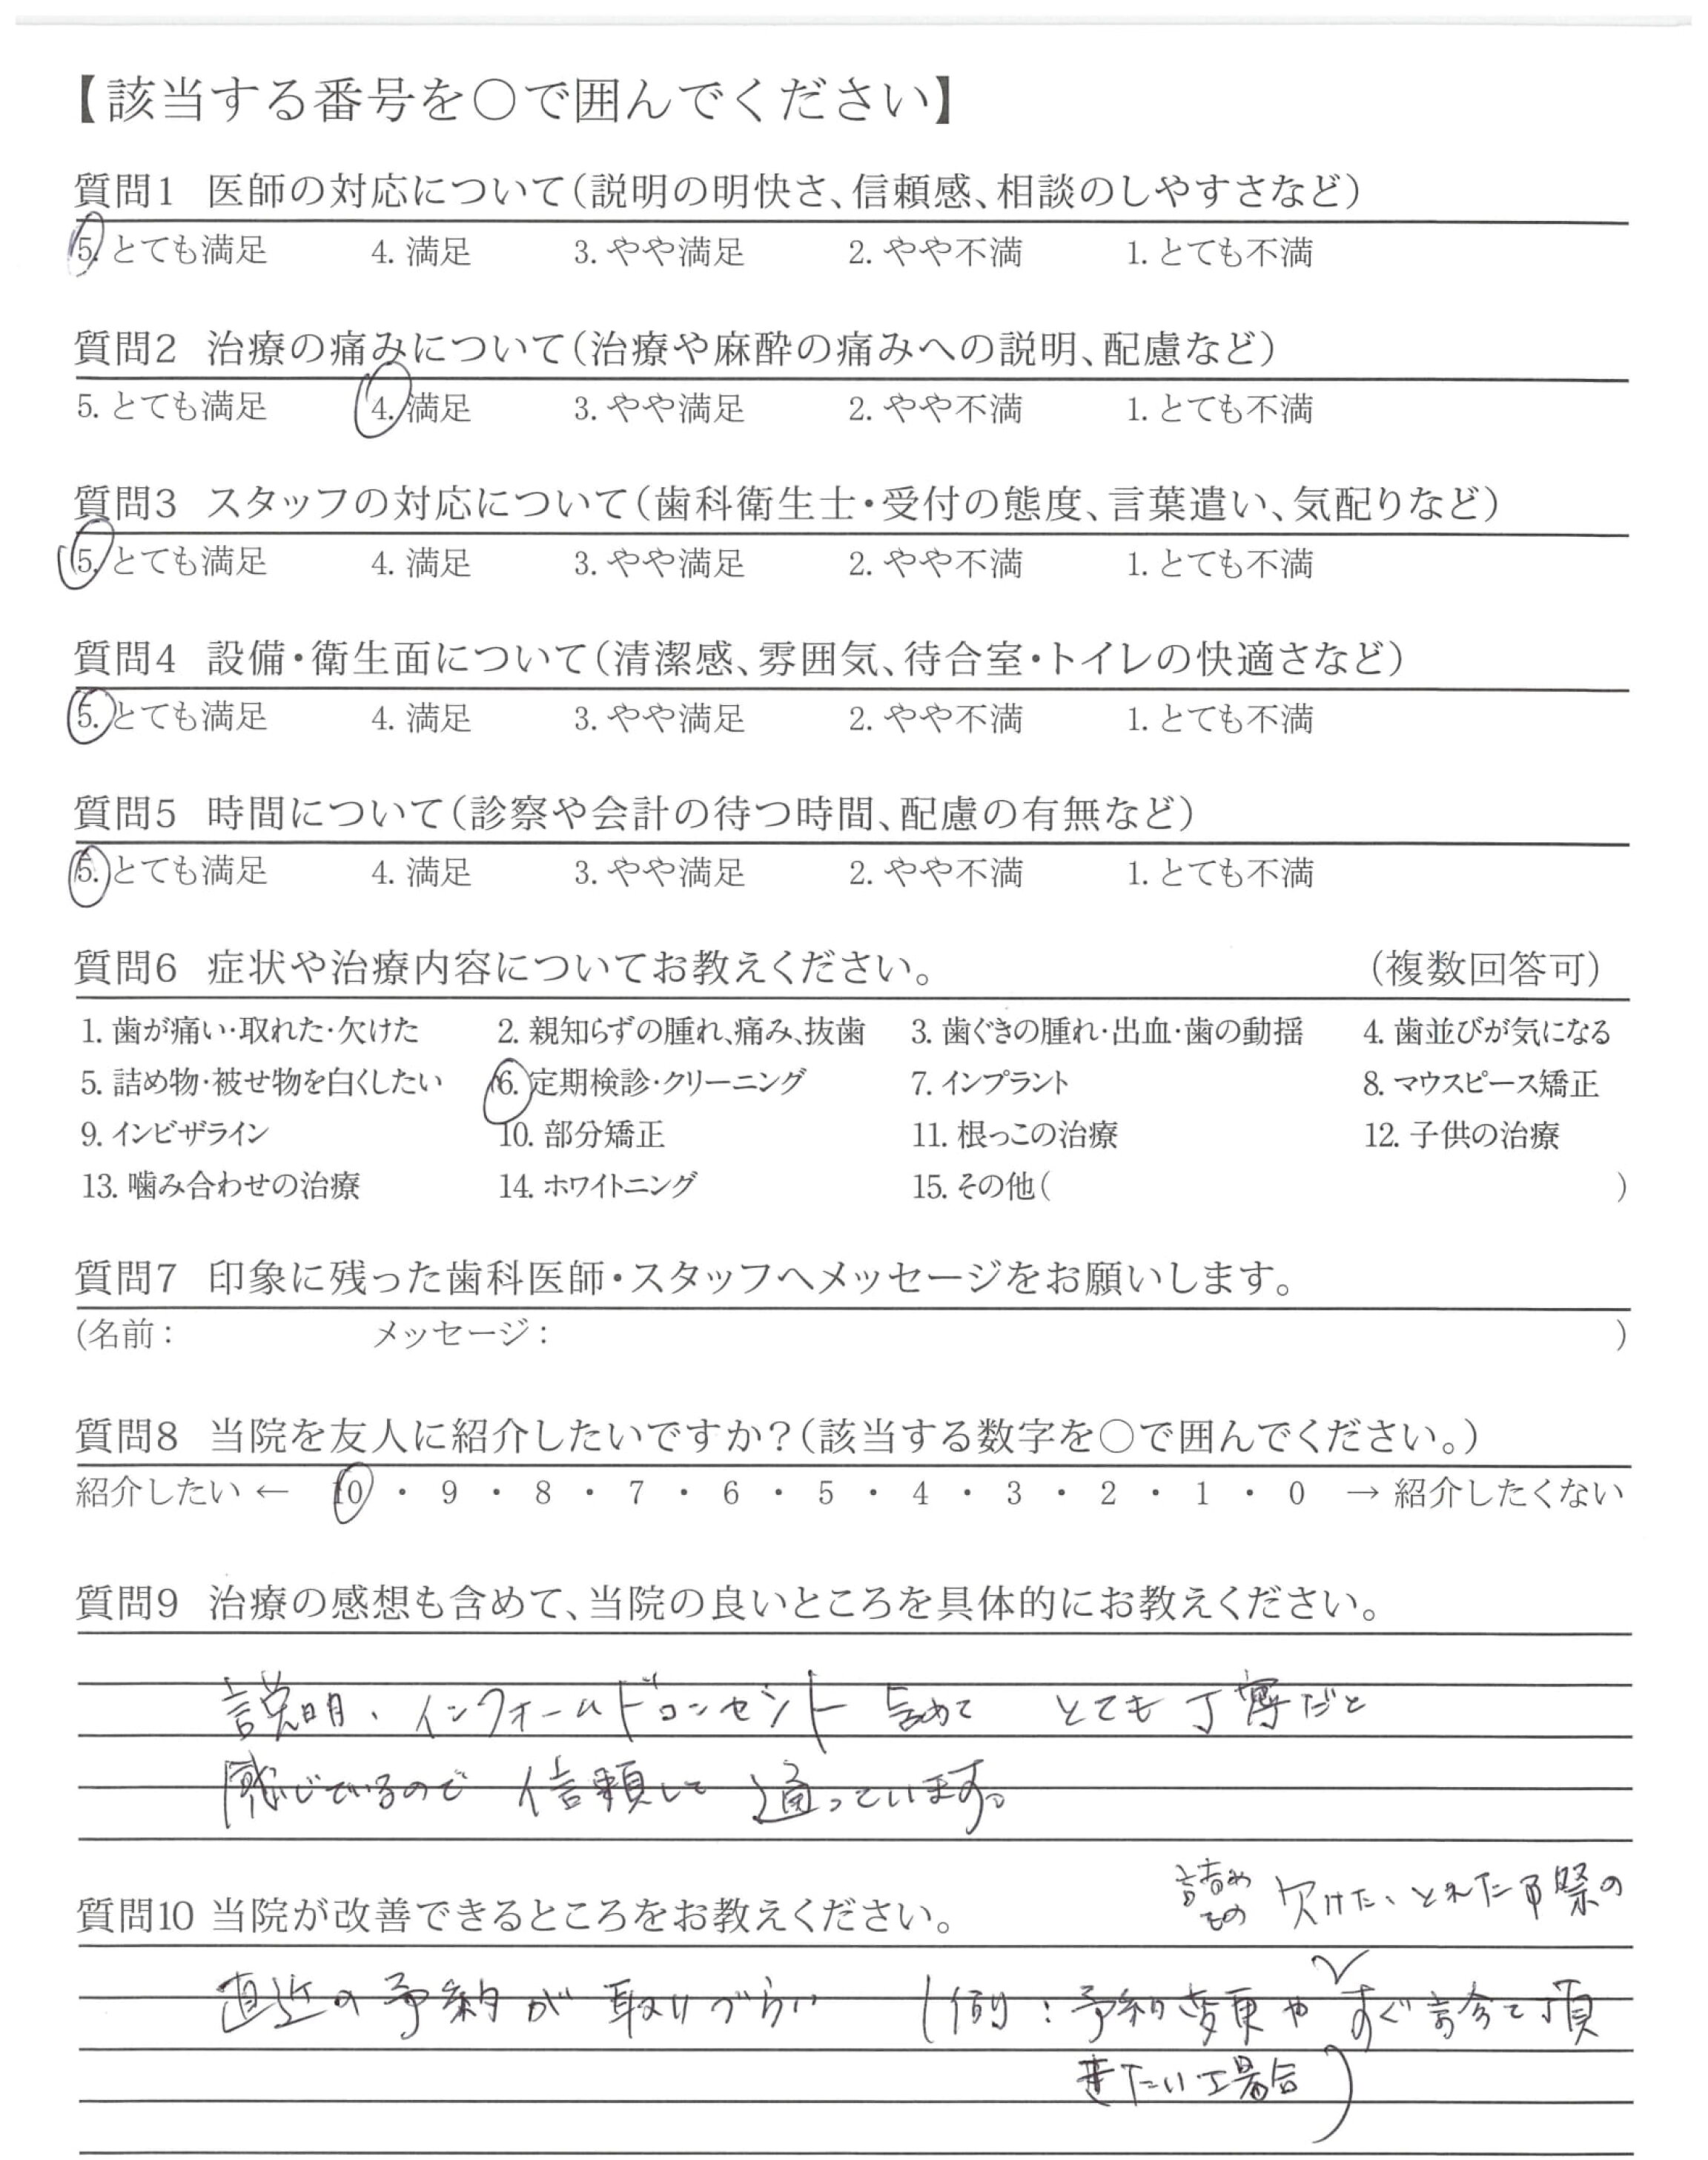 【該当する番号を○で囲んでください】
質問1 医師の対応について(説明の明快さ、信頼感、相談のしやすさなど)
5. とても満足 4. 満足 3. やや満足 2. やや不満 1. とても不満
質問2 治療の痛みについて(治療や麻酔の痛みへの説明、配慮など)
5. とても満足 4. 満足 3. やや満足 2. やや不満 1. とても不満
質問3 スタッフの対応について(歯科衛生士・受付の態度、言葉遣い、気配りなど)
5. とても満足 4. 満足 3. やや満足 2. やや不満 1. とても不満
質問4 設備・衛生面について(清潔感、雰囲気、待合室・トイレの快適さなど)
5. とても満足 4. 満足 3. やや満足 2. やや不満 1. とても不満
質問5 時間について(診察や会計の待つ時間、配慮の有無など)
5. とても満足 4. 満足 3. やや満足 2. やや不満 1. とても不満
質問6 症状や治療内容についてお教えください。 (複数回答可)
1. 歯が痛い・取れた・欠けた 2. 親知らずの腫れ、痛み、抜歯 3. 歯ぐきの腫れ・出血・歯の動揺 4. 歯並びが気になる
5. 詰め物・被せ物を白くしたい 6. 定期検診・クリーニング 7. インプラント 8. マウスピース矯正
9. インビザライン 10. 部分矯正 11. 根っこの治療 12. 子供の治療
13. 噛み合わせの治療 14. ホワイトニング 15. その他( )
質問7 印象に残った歯科医師・スタッフへメッセージをお願いします。
(名前: メッセージ: )
質問8 当院を友人に紹介したいですか?(該当する数字を○で囲んでください。)
紹介したい ← 10 ・ 9 ・ 8 ・ 7 ・ 6 ・ 5 ・ 4 ・ 3 ・ 2 ・ 1 ・ 0 → 紹介したくない
質問9 治療の感想も含めて、当院の良いところを具体的にお教えください。
説明、インフォームドコンセント含めて とても丁寧だと
感じているので 信頼して 通っています。
質問10 当院が改善できるところをお教えください。
詰めもの 欠けた、とれた 際の
直近の予約が 取りづらい (例:予約変更や すぐ診て頂
きたい場合)